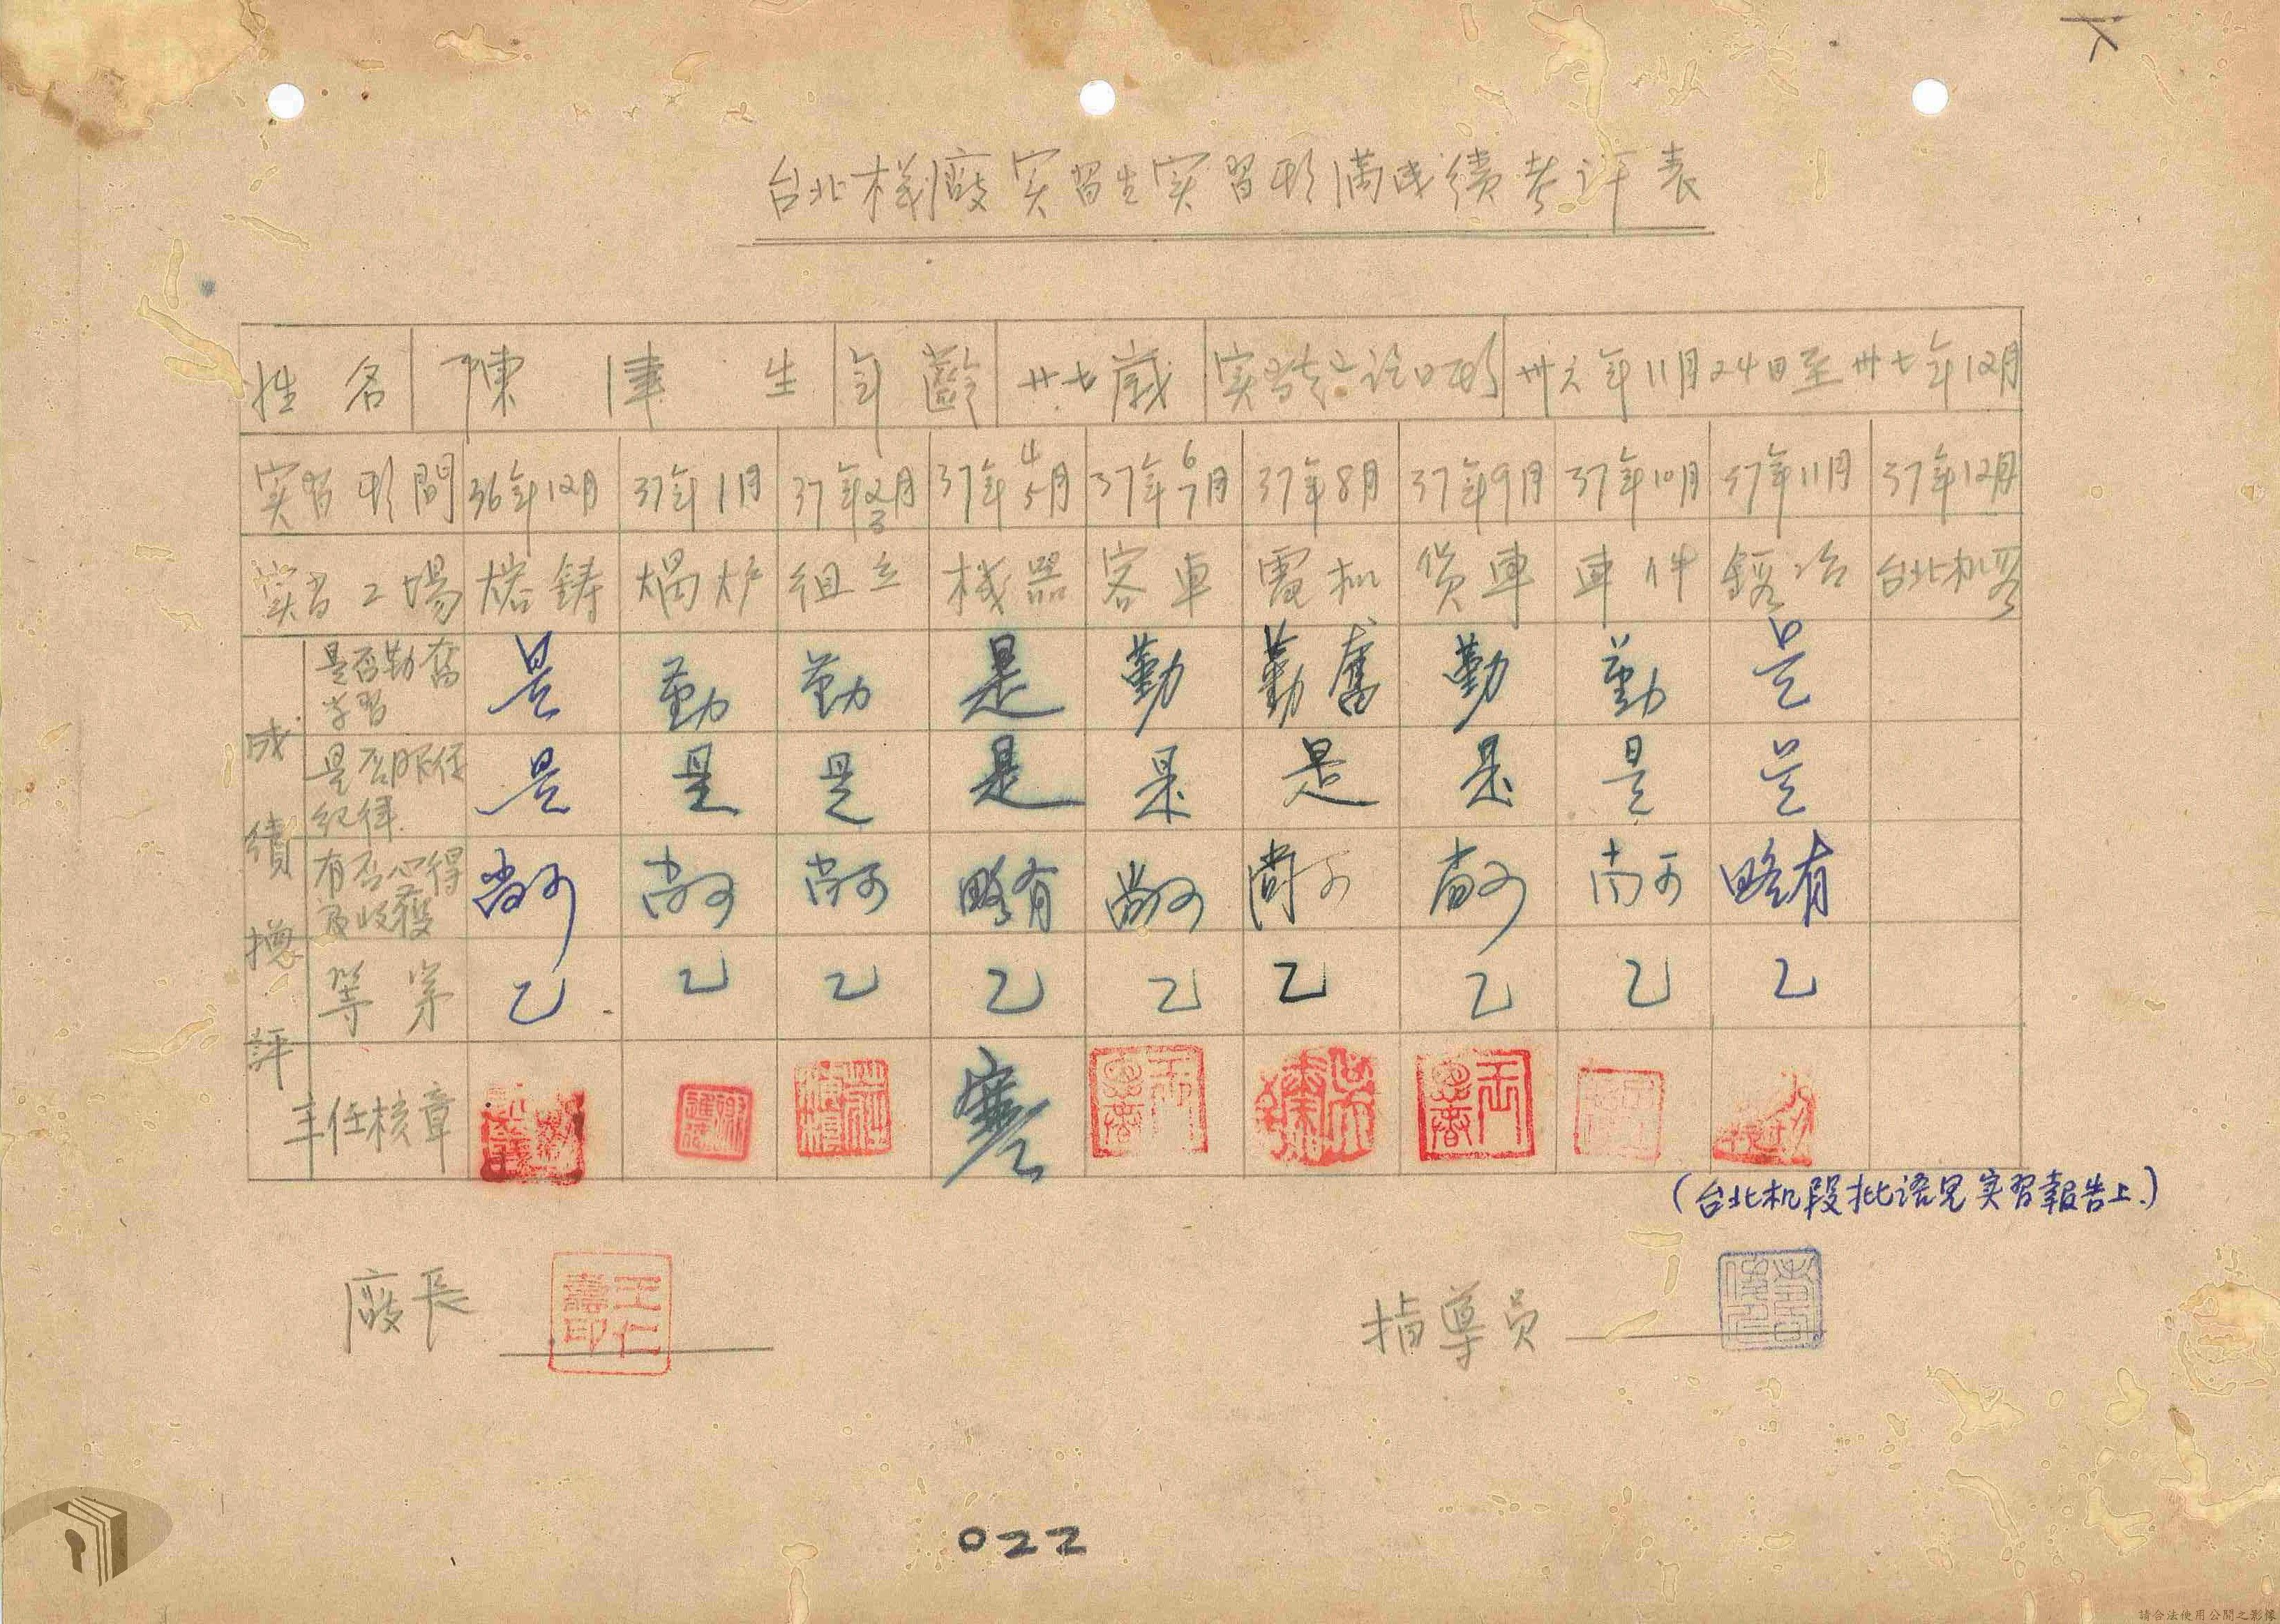 台北機廠实習生实習期満成績考評表
姓名 陳津生 年齡 廿七歲 实習起訖日期 卅六年11月24日至卅七年12月
实習期間 36年12月 37年1月 37年2月3 37年4月5 37年6月7 37年8月 37年9月 37年10月 37年11月 37年12月
实習工場 熔鋳 焗炉 組立 機器 客車 電机 货車 車件 鍛冶 台北机段
成績摠評
是否勤奮学習 是 勤 勤 是 勤 勤奮 勤 勤 是
是否服従紀律 是 是 是 是 是 是 是 是 是
有否心得及收獲 尚可 尚可 尚可 略有 尚可 尚可 尚可 尚可 略有
等第 乙 乙 乙 乙 乙 乙 乙 乙 乙
主任核章
(台北机段批语見实習報告上.)
廠長 王仁壽印
指導员
022
請合法使用公開之影像